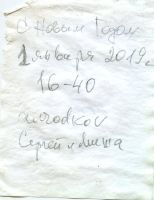 С Новым Годом
1 января 2019г
16-40
Сергей и